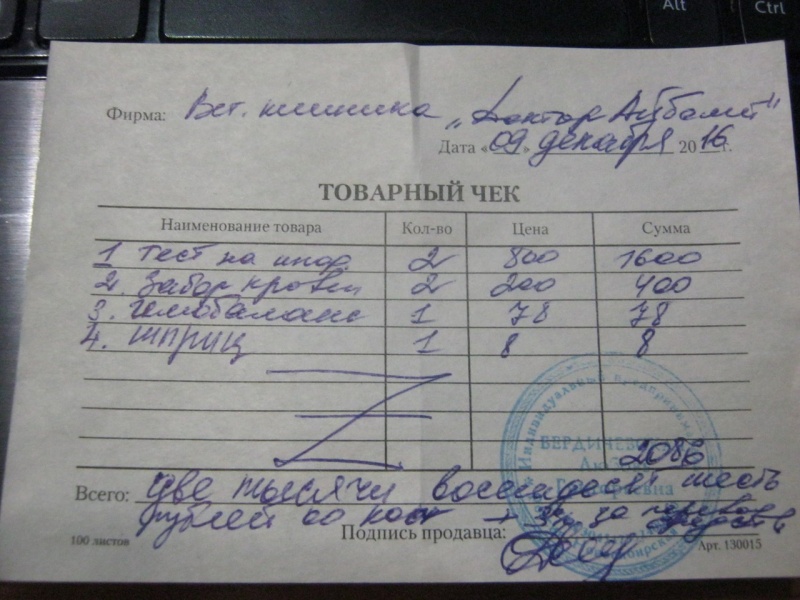 Фирма: Вет. клиника „Доктор Айболит"
Дата «09» декабря 2016 г.
ТОВАРНЫЙ ЧЕК
Наименование товара Кол-во Цена Сумма
1 Тест на инф. 2 800 1600
2. Забор крови 2 200 400
3. Гемобаланс 1 78 78
4. шприц 1 8 8
2086
Всего: две тысячи восемьдесят шесть
рублей 00 коп + за перевод средств
Подпись продавца:
100 листов Арт. 130015
Индивидуальный предприниматель
БЕРДИЧЕВ